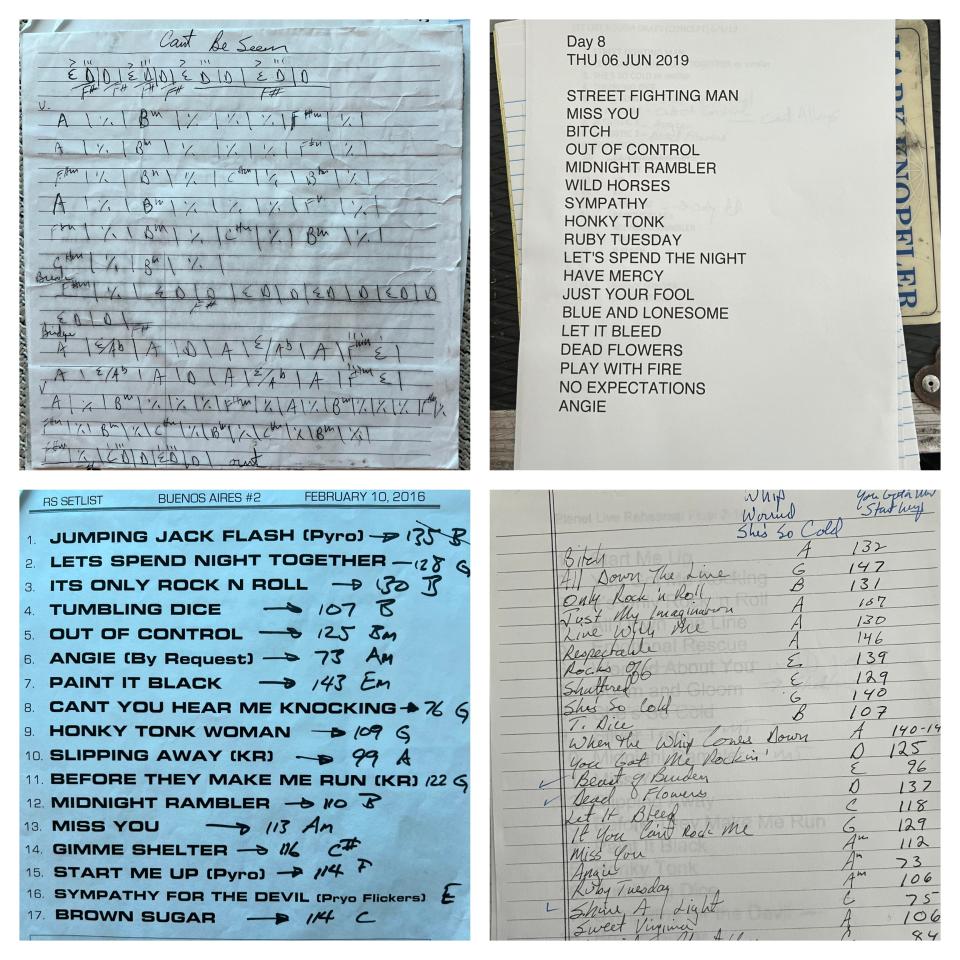 Cant Be Seen
E D | D | E D | D | E D | D | E D | D
F# F# F# F#
V.
A | ٪ | Bm | ٪ | ٪ | ٪ | F#m | ٪ |
A | ٪ | Bm | ٪ | ٪ | ٪ | F#m | ٪ |
F#m | ٪ | Bm | ٪ | C#m | ٪ | Bm | ٪ |
A | ٪ | Bm | ٪ | ٪ | ٪ | ٪ |
F#m | ٪ | Bm | ٪ | C#m | ٪ | Bm | ٪ |
C#m | ٪ | Bm | ٪ |
Break
F#m | ٪ | E D | D | E D | D | E D | D | E D | D
F#
E D | D |
F#
Bridge
A | E/Ab | A | D | A | E/Ab | A | F#m E |
A | E/Ab | A | D | A | E/Ab | A | F#m E |
V
A | ٪ | Bm | ٪ | ٪ | ٪ | F#m | ٪ | A | ٪ | Bm | ٪ | ٪ | ٪ | F#m ٪
F#m | ٪ | Bm | ٪ | C#m | ٪ | Bm | ٪ | C#m | ٪ | Bm | ٪ |
F#m | ٪ | E D | D | E D | D | out
Day 8
THU 06 JUN 2019
STREET FIGHTING MAN
MISS YOU
BITCH
OUT OF CONTROL
MIDNIGHT RAMBLER
WILD HORSES
SYMPATHY
HONKY TONK
RUBY TUESDAY
LET'S SPEND THE NIGHT
HAVE MERCY
JUST YOUR FOOL
BLUE AND LONESOME
LET IT BLEED
DEAD FLOWERS
PLAY WITH FIRE
NO EXPECTATIONS
ANGIE
MARK KNOPFLER
RS SETLIST BUENOS AIRES #2 FEBRUARY 10, 2016
1. JUMPING JACK FLASH (Pyro) → 135 B
2. LETS SPEND NIGHT TOGETHER — 128 G
3. ITS ONLY ROCK N ROLL → 130 B
4. TUMBLING DICE → 107 B
5. OUT OF CONTROL → 125 Bm
6. ANGIE (By Request) → 73 Am
7. PAINT IT BLACK → 143 Em
8. CANT YOU HEAR ME KNOCKING → 76 G
9. HONKY TONK WOMAN → 109 G
10. SLIPPING AWAY (KR) → 99 A
11. BEFORE THEY MAKE ME RUN (KR) 122 G
12. MIDNIGHT RAMBLER → 110 B
13. MISS YOU → 113 Am
14. GIMME SHELTER → 116 C#
15. START ME UP (Pyro) → 114 F
16. SYMPATHY FOR THE DEVIL (Pryo Flickers) E
17. BROWN SUGAR → 114 C
Whip You Gotta
Worried Start
She's So Cold
Bitch A 132
All Down The Line G 147
Only Rock 'n Roll B 131
Just My Imagination A 107
Live With Me A 130
Respectable A 146
Rocks Off E 139
Shattered E 129
She's So Cold G 140
T. Dice B 107
When The Whip Comes Down A 140-14
You Got Me Rockin' D 125
Beast of Burden E 96
Dead Flowers D 137
Let It Bleed C 118
If You Can't Rock Me G 129
Miss You Am 112
Angie Am 73
Ruby Tuesday Am 106
Shine A Light C 75
Sweet Virginia A 106
84